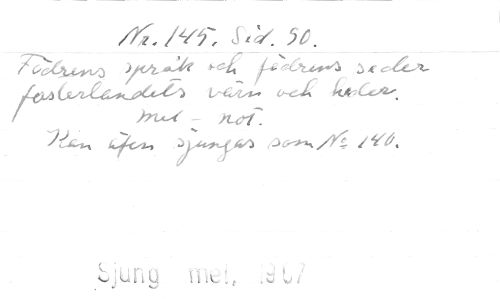 Nr. 145. Sid. 90.
Fädrens språk och fädrens seder
fosterlandets värn och heder.
mel - not.
Kan äfen sjungas som No 140.
Sjung mel, 1907